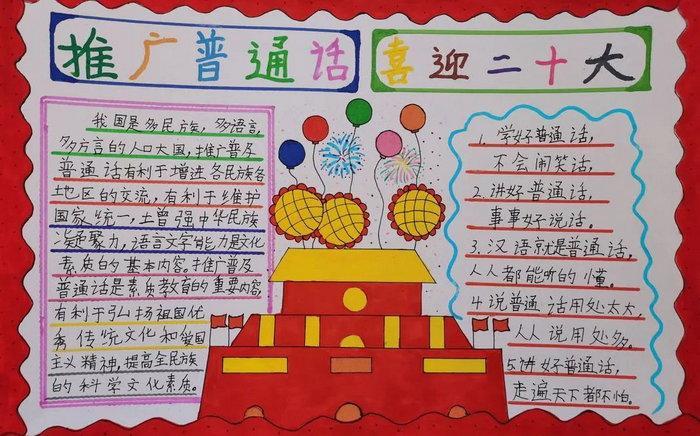 推广普通话
喜迎二十大
我国是多民族，多语言，
多方言的人口大国，推广普及
普通话有利于增进各民族各
地区的交流，有利于维护
国家统一，增强中华民族
凝聚力，语言文字能力是文化
素质的基本内容。推广普及
普通话是素质教育的重要内容，
有利于弘扬祖国优
秀传统文化和爱国
主义精神，提高全民族
的科学文化素质。
1. 学好普通话，
不会闹笑话，
2. 讲好普通话，
事事好说话。
3. 汉语就是普通话，
人人都能听的懂。
4. 说普通话用处太大，
人人说用处多。
5. 讲好普通话，
走遍天下都不怕。